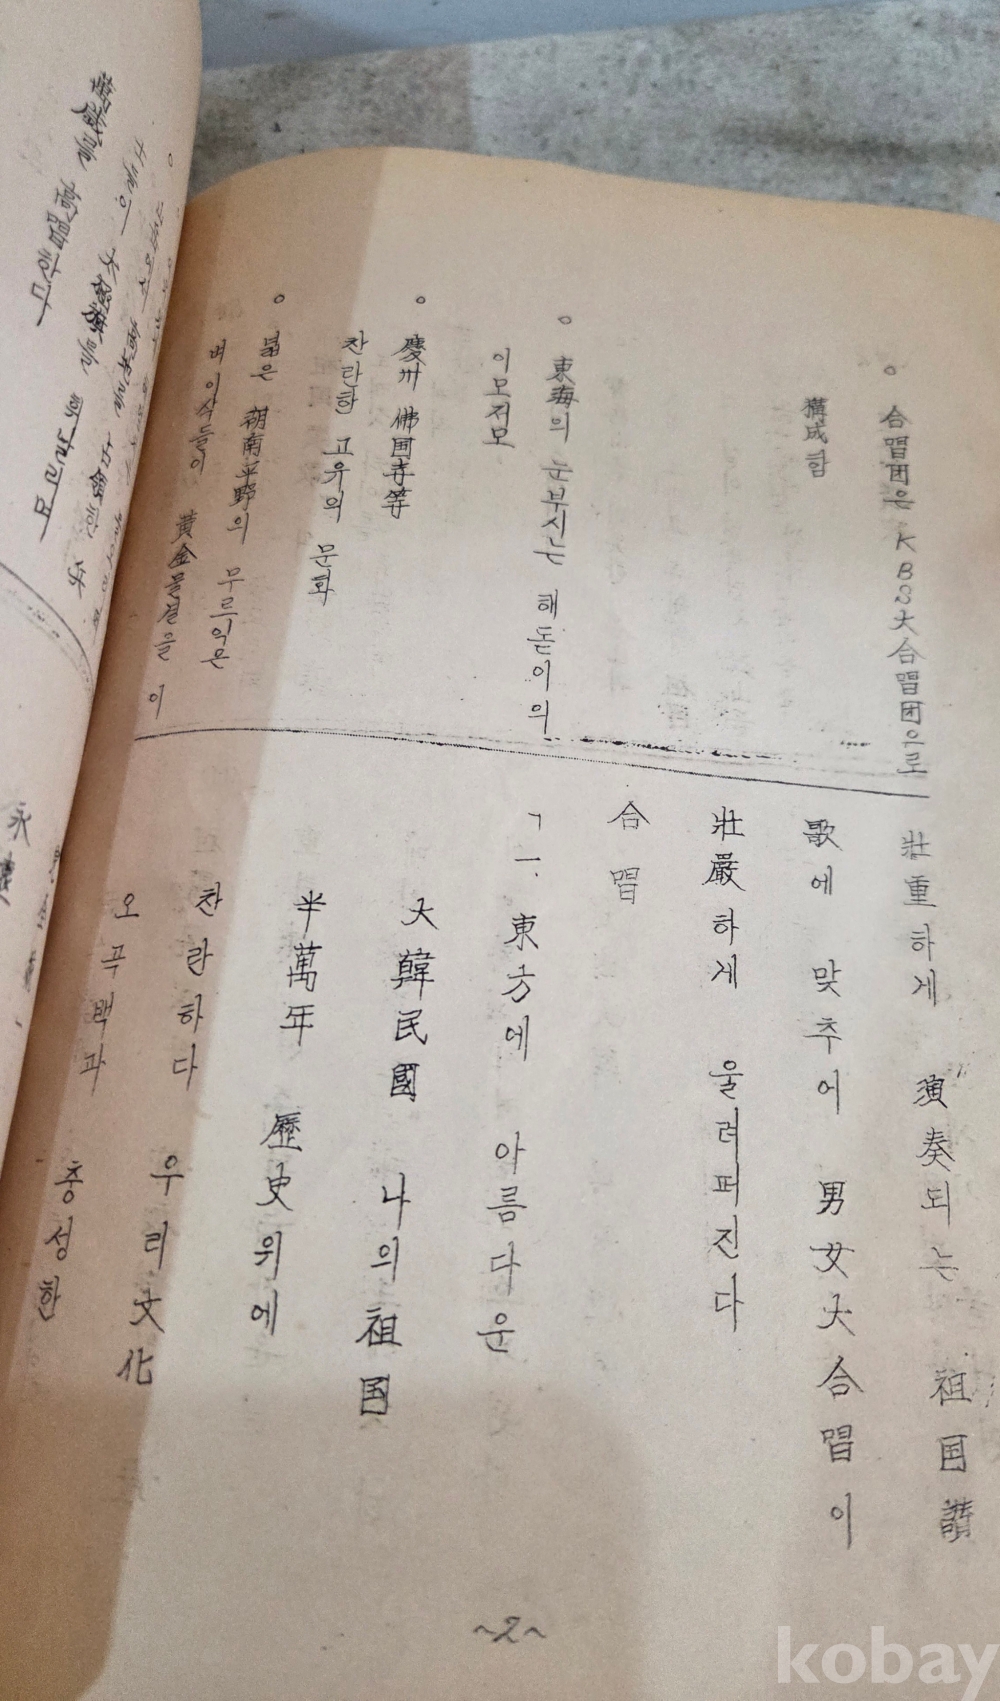 合唱団은 KBS大合唱団으로
構成함
東海의 눈부시는 해돋이의
이모저모
慶州 佛国寺等
찬란한 고유의 문화
넓은 湖南平野의 무르익은
벼이삭들이 黃金물결을 이
壯重하게 演奏되는 祖国讚
歌에 맞추어 男女大合唱이
壯嚴하게 울려퍼진다
合唱
「一. 東方에 아름다운
大韓民國 나의 祖国
半萬年 歷史위에
찬란하다 우리文化
오곡백과 충성한
~2~
萬歲를 高唱한다
kobay